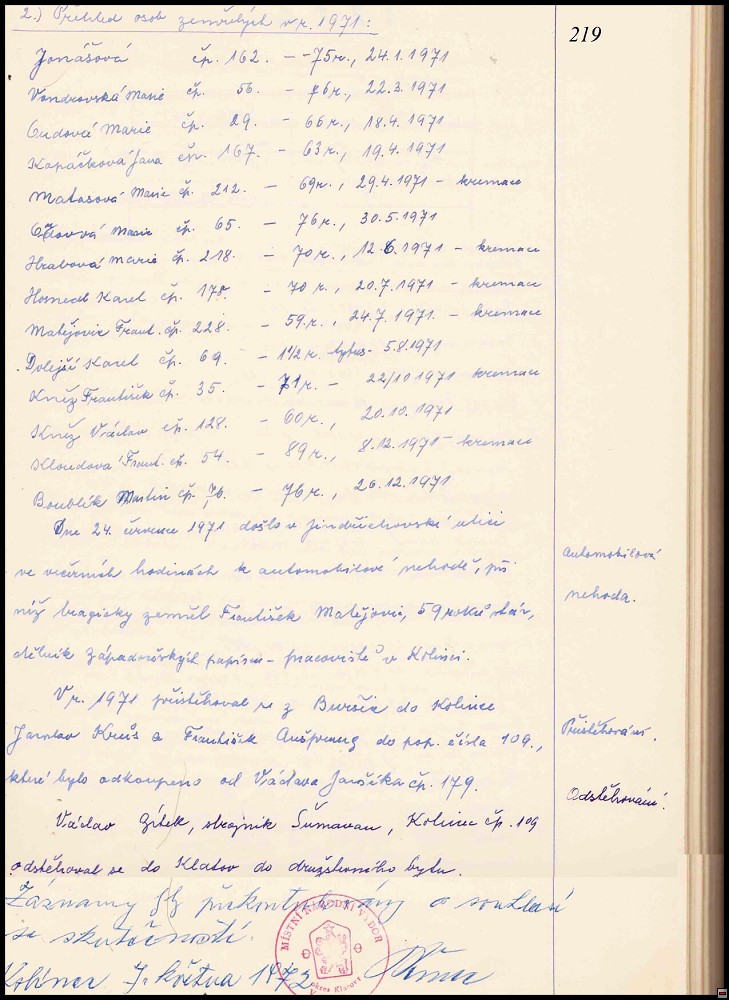 219
2.) Přehled osob zemřelých v r. 1971:
Jonášová čp. 162. - -75r., 24.1.1971
Vondrovská Marie čp. 56. - 76r., 22.3.1971
Marie čp. 29. - 66r., 18.4.1971
Kopáčková Jana čp. 167. - 63r., 19.4.1971
Matasová Marie čp. 212. - 69r., 29.4.1971 - kremace
Marie čp. 65. - 76r., 30.5.1971
Hrabová Marie čp. 218. - 70r., 12.6.1971 - kremace
Karel čp. 178. - 70 r., 20.7.1971 - kremace
Matějovic Frant. čp. 228. - 59.r., 24.7.1971. - kremace
Dolejší Karel čp. 69. - 5.8.1971
Kněz František čp. 35. - 71r. - 22/10 1971 kremace
Kněz Václav čp. 128. - 60r., 20.10.1971
Kloudová Frant. čp. 54. - 89r., 8.12.1971 - kremace
Boublík Martin čp. 76. - 76r., 26.12.1971
Dne 24. července 1971 došlo v Jindřichovské ulici
ve večerních hodinách k automobilové nehodě, při
níž tragicky zemřel František Matějovic, 59 roků stár,
dělník Západočeských papíren - pracoviště v Kolinci.
Automobilová
nehoda.
V r. 1971 přistěhoval se z Buršic do Kolince
Jaroslav a František do pop. čísla 109.,
které bylo odkoupeno od Václava Jaršíka čp. 179.
Přistěhování.
Václav Zítek, strojník Šumavan, Kolinec čp. 109
odstěhoval se do Klatov do družstevního bytu.
Odstěhování.
Záznamy překontrolovány a souhlasí
se skutečností.
Kolinec 7. května 1972
MÍSTNÍ NÁRODNÍ VÝBOR
okres Klatovy